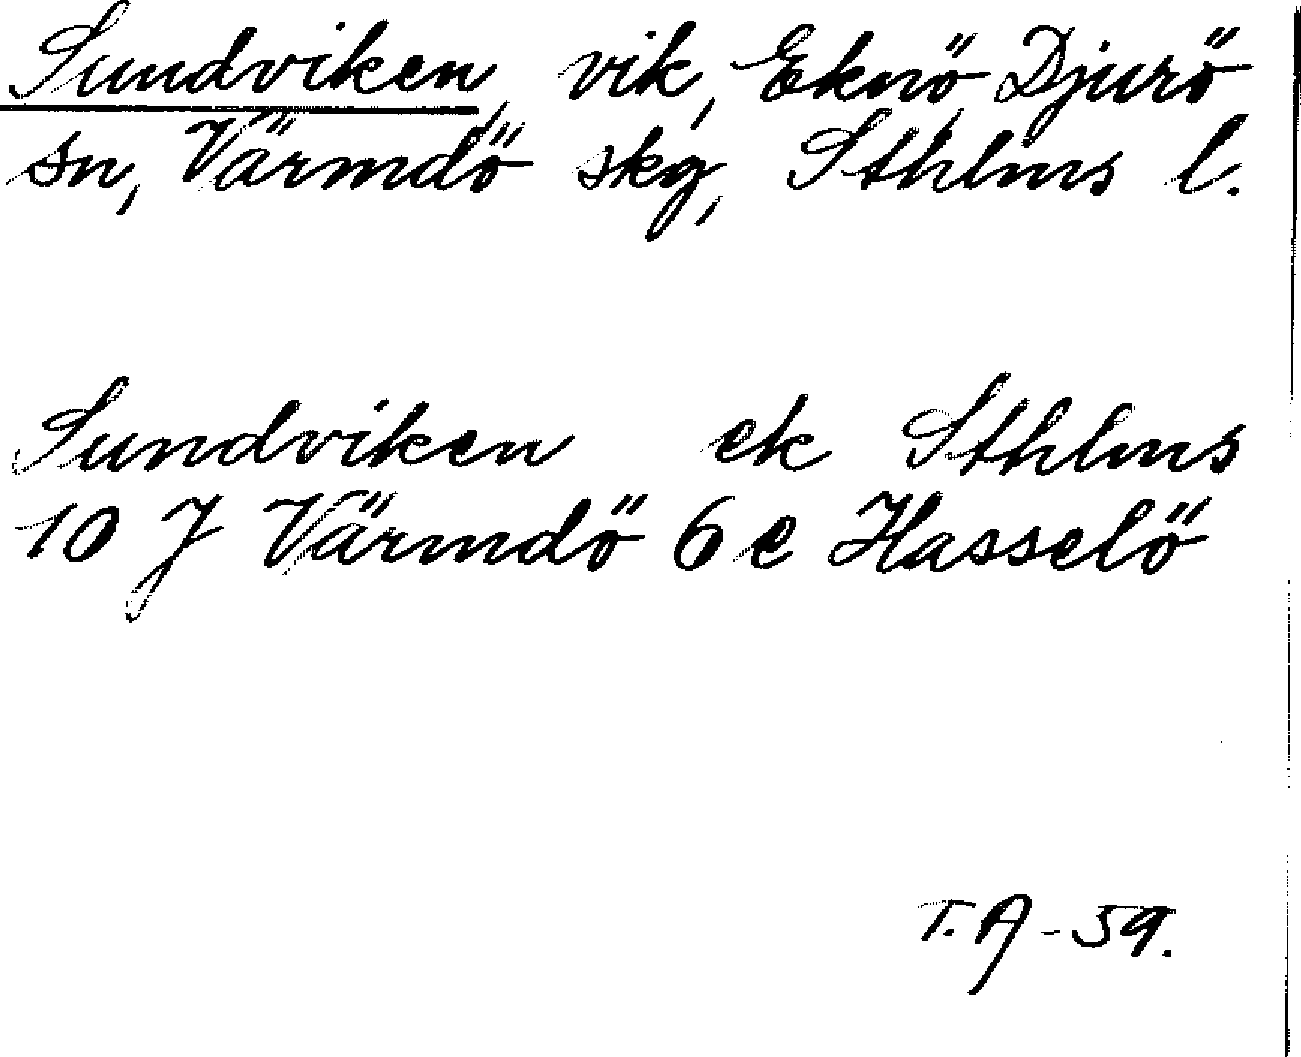 Sundviken, vik, Eknö, Djurö
sn, Värmdö skg, Sthlms l.
Sundviken ek Sthlms
10 J Värmdö 6 e Hasselö
T.A-59.